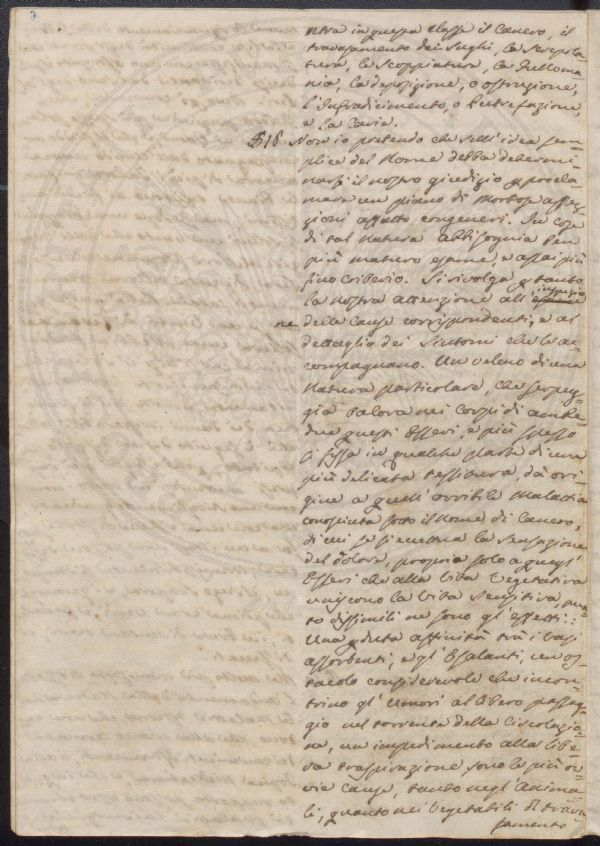 ntra in questa Classe il Cancro, il
travasamento dei Sughi, la Screpola-
tura, la Scoppiatura, la Fulloma-
nia, la deposizione, o ostruzione,
l'Infradicimento, o Putrefazione,
e la Carie.
§16 Non io pretendo che sull'idea sem-
plice del Nome debba determi-
narsi il nostro giudizio p procla-
mare un piano di Morbose affe-
zioni affatto congeneri. In cose
di tal Natura abbisogna ben
più maturo esame, e assai più
fino criterio. Si rivolga p tanto
la nostra attenzione all' ispezio-
ne delle Cause corrispondenti, e al
dettaglio dei Sintomi che le ac-
compagnano. Un veleno di una
Natura particolare, che serpeg-
gia talora nei Corpi di ambe-
due questi Esseri, e più spesso
si fissa in qualche parte di una
più delicata tessitura, dà ori-
gine a quell' orribile Malattia
conosciuta sotto il Nome di Cancro,
di cui se si eccettua la Sensazione
del dolore, propria solo a quegl'
Esseri che alla Vita Vegetativa
uniscono la Vita Sensitiva, pun-
to dissimili ne sono gl' effetti:
Una pduta affinità trà i Vasi
assorbenti, e gl' Esalanti, un os-
tacolo considerevole che incon-
trino gl' Umori al libero passeg-
gio nel torrente della Circolazio-
ne, un impedimento alla libe-
ra traspirazione sono le più ov-
vie cause, tanto negl' Anima-
li, quanto nei Vegetabili di trava-
samento